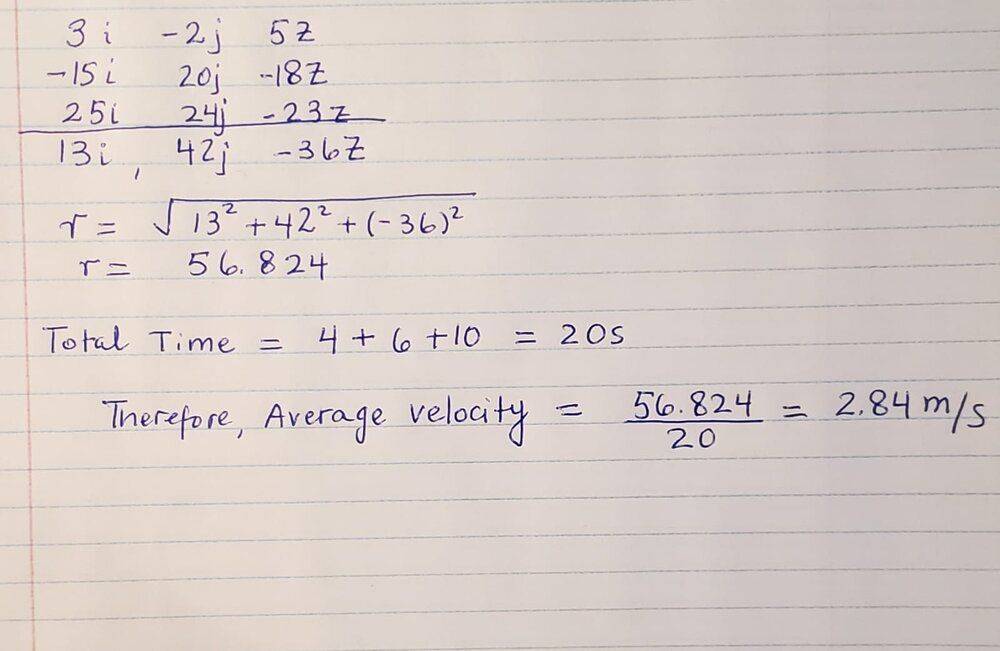 3i -2j 5z
-15i 20j -18z
25i 24j -23z
13i, 42j -36z
r = √13² + 42² + (-36)²
r = 56.824
Total Time = 4 + 6 + 10 = 20s
Therefore, Average velocity = 56.824/20 = 2.84 m/s